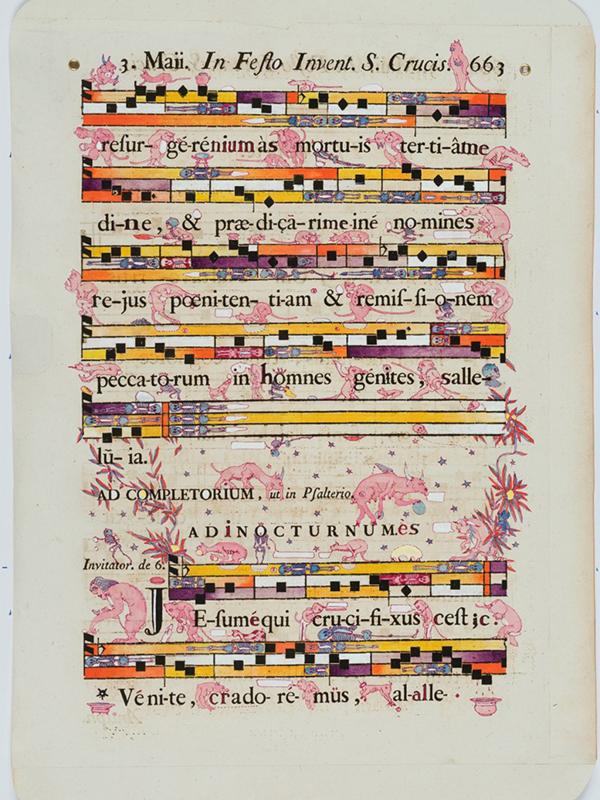 3. Maii. In Festo Invent. S. Crucis. 663
resur- gé-rénium às mortu-is ter-ti-âme
di-ne, & præ-di-çā-rime iné no-mines
re-jus pœni-ten- ti-am & remis-si-o-nem
pecca-to-rum in homnes génites, salle-
lū-ia.
AD COMPLETORIUM, ut in Psalterio,
ADiNOCTURNUMes
Invitator. de 6.
J E-sumé qui cru-ci-fi-xus cest jc.
* Vé ni-te, crado-re- mūs, al-alle-